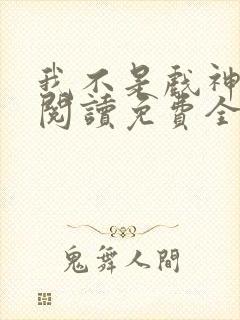 我不是戲神
閱讀免費全
鬼舞人間